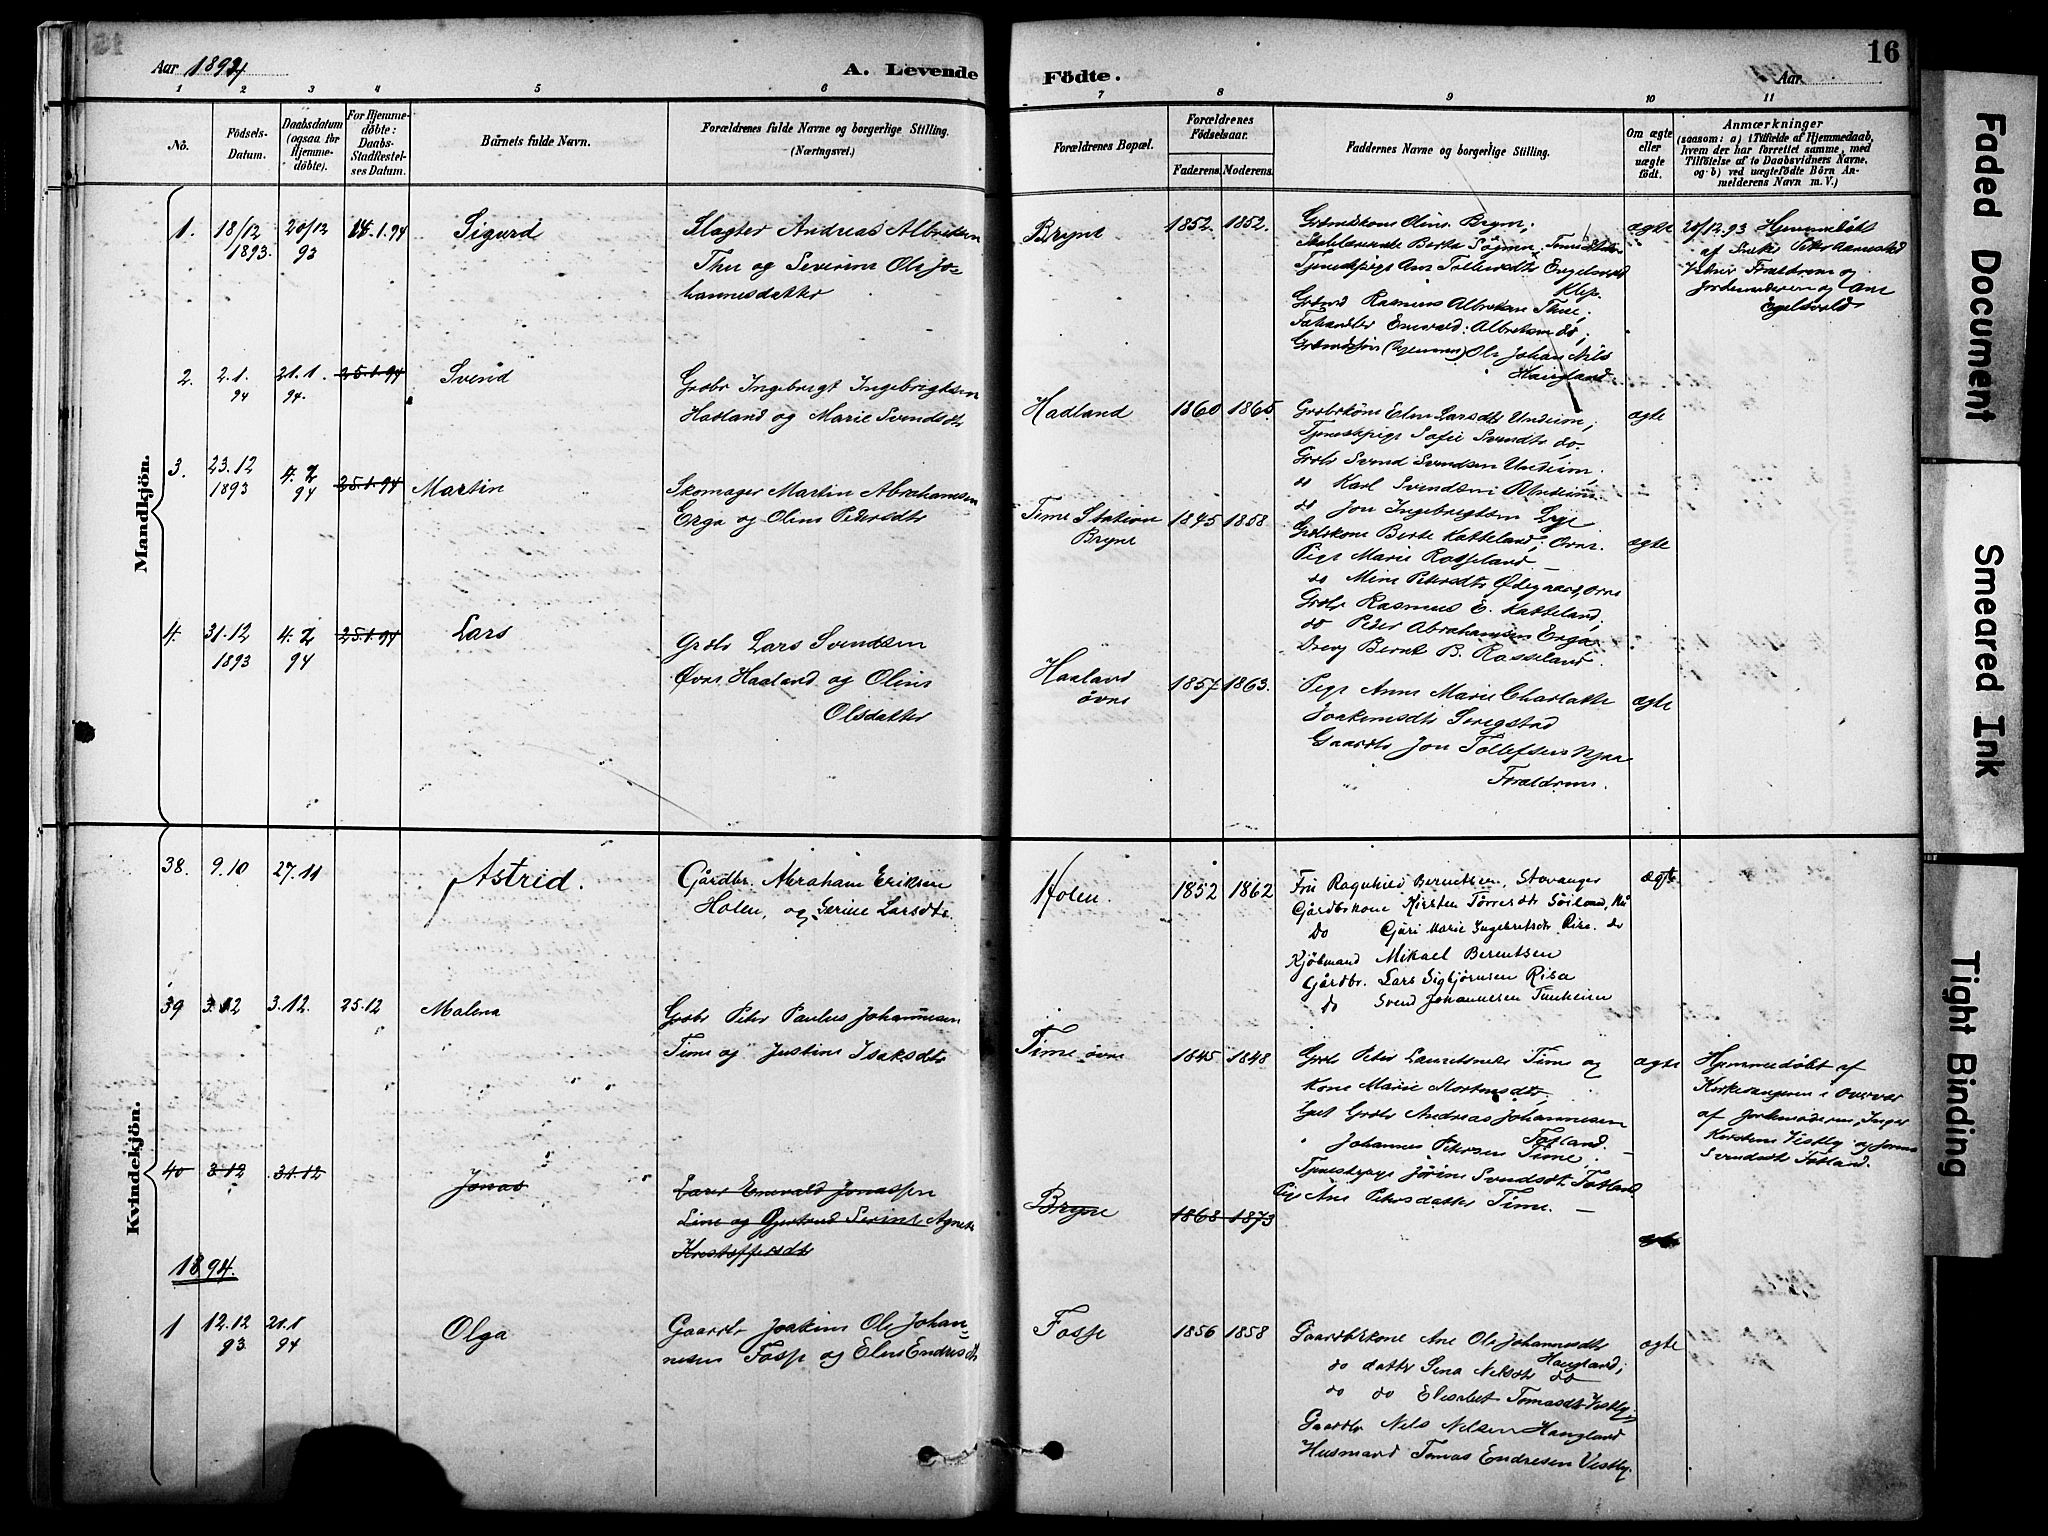 16
Aar 1894
A. Levende
Födte.
Aar
1 2 3 4 5 6 7 8 9 10 11
Nô.
Födsels-
Datum.
Daabsdatum
(ogsaa for
Hjemme-
döbte).
For Hjemme-
døbte:
Daabs-
Stadfæstel-
ses Datum.
Bârnets fulde Navn.
Forældrenes fulde Navne og borgerlige Stilling.
(Næringsvei.)
Forældrenes Bopæl.
Forældrenes
Födselsaar.
Faderens. Moderens.
Faddernes Navne og borgerlige Stilling.
Om ægte
eller
uægte
födt.
Anmærkninger
(saasom: a) i Tilfælde af Hjemmedaab,
hvem der har forrettet samme, med
Tilföielse af to Daabsvidners Navne,
og b) ved uægtefödte Börn An-
melderens Navn m. V.)
Mandkjön.
1. 18/12 1893. 20/12 93 15.1.94 Sigurd
Slagter Andreas Albretsen
Thu og Severine Ole Jo-
hannesdatter
Bryne 1852. 1852.
Grdmdskone Oline Bryne
Klep.
Grdmd Rasmus Albretsen Thue;
Haugland
ægte
20/12.93 Hjemmedöbt
Vidner Forældrene og
Jordemoderen og Ane
Egelsvold
2. 2.1. 94 21.1. 94. 25.1.94 Svend
Grdbr Ingebregt Ingebrigtsen
Hadland og Marie Svendsdt
Hadland 1860 1865
Grdbrkone Elen Larsdtr Undeim;
Tjenestpige Sofie Svendsdtr do
Grdbr Svend Svendsen Undeim.
do Karl Svendsen Undeim
do Jon Ingebrigtsen Lye
ægte
3. 23.12 1893 4.2 94 25.1.94 Martin
Skomager Martin Abrahamsen
Erga og Oline Pedersdtr
Time Station
Bryne
1845 1858
Grdbrkone Berte Katteland, Orre.
Pige Marie Rosseland.
do Mine Petersdtr Ødegaard, Orre
Grdbr Rasmus E. Katteland;
do Peder Abrahamsen Erga
Dreng Bernt B. Rosseland.
ægte
4. 31.12 1893 4.2 94 25.1.94 Lars
Grdbr Lars Svendsen
Øvre Haaland og Oline
Olsdatter
Haaland
øvre
1857 1863.
Pige Anne Marie Charlotte
Joakimsdtr Seregstad
Gaardbr Jon Tollefsen Njaa
Forældrene.
ægte
Kvindekjön.
38. 9.10 27.11 Astrid.
Gårdbr. Abraham Eriksen
Holen, og Serine Larsdtr.
Holen. 1852 1862
Fru Ragnhild Berentsen, Stavanger
Gårdbrkone Kirsten Torresdtr Söiland, Kå
Do Gjuri Marie Ingebretsdtr Risa. do
Kjöbmand Mikael Berentsen
Gårdbr. Lars Sigbjörnsen Risa
do Svend Johannesen Tunheim
ægte
39 3.12 3.12. 25.12 Malena
Grdbr Peter Paulus Johannesen
Time og Justine Isaksdtr
Time øvre 1845 1848
Grdbr Peter Lauritsen Time og
kone Marie Mortensdtr,
Grdbr Andreas Johannesen
Fotland.
Johannes Petersen Time.
Tjenestepige Jörine Svendsdtr Fotland
Pige Ane Petersdatter Time.
ægte
Hjemmedöbt af
Kirkesangeren i Overvær
af Jordemoderen, Inger
Kirstine Vestly og Jonna
Svendsdtr Fotland.
40 3.12 31.12 Jonas
Lærer Enevald Jonassen
Line og Gjertrud Serine Agnete
Kristoffersdtr
Bryne 1868 1873
ægte
1894.
1 12.12 93 21.1 94 Olga
Gaardbr Joakim Ole Johan-
nesen Fosse og Elen Endresdtr
Fosse 1856 1858
Gaardbrkone Ane Ole Johannesdtr
Haugland;
do datter Sena Nelsdtr do
do do Elisabet Tomasdtr Vestly
Gaardbr Nels Nelsen Haugland
Husmand Tomas Endresen Vestly.
ægte
Faded Document
Smeared Ink
Tight Binding